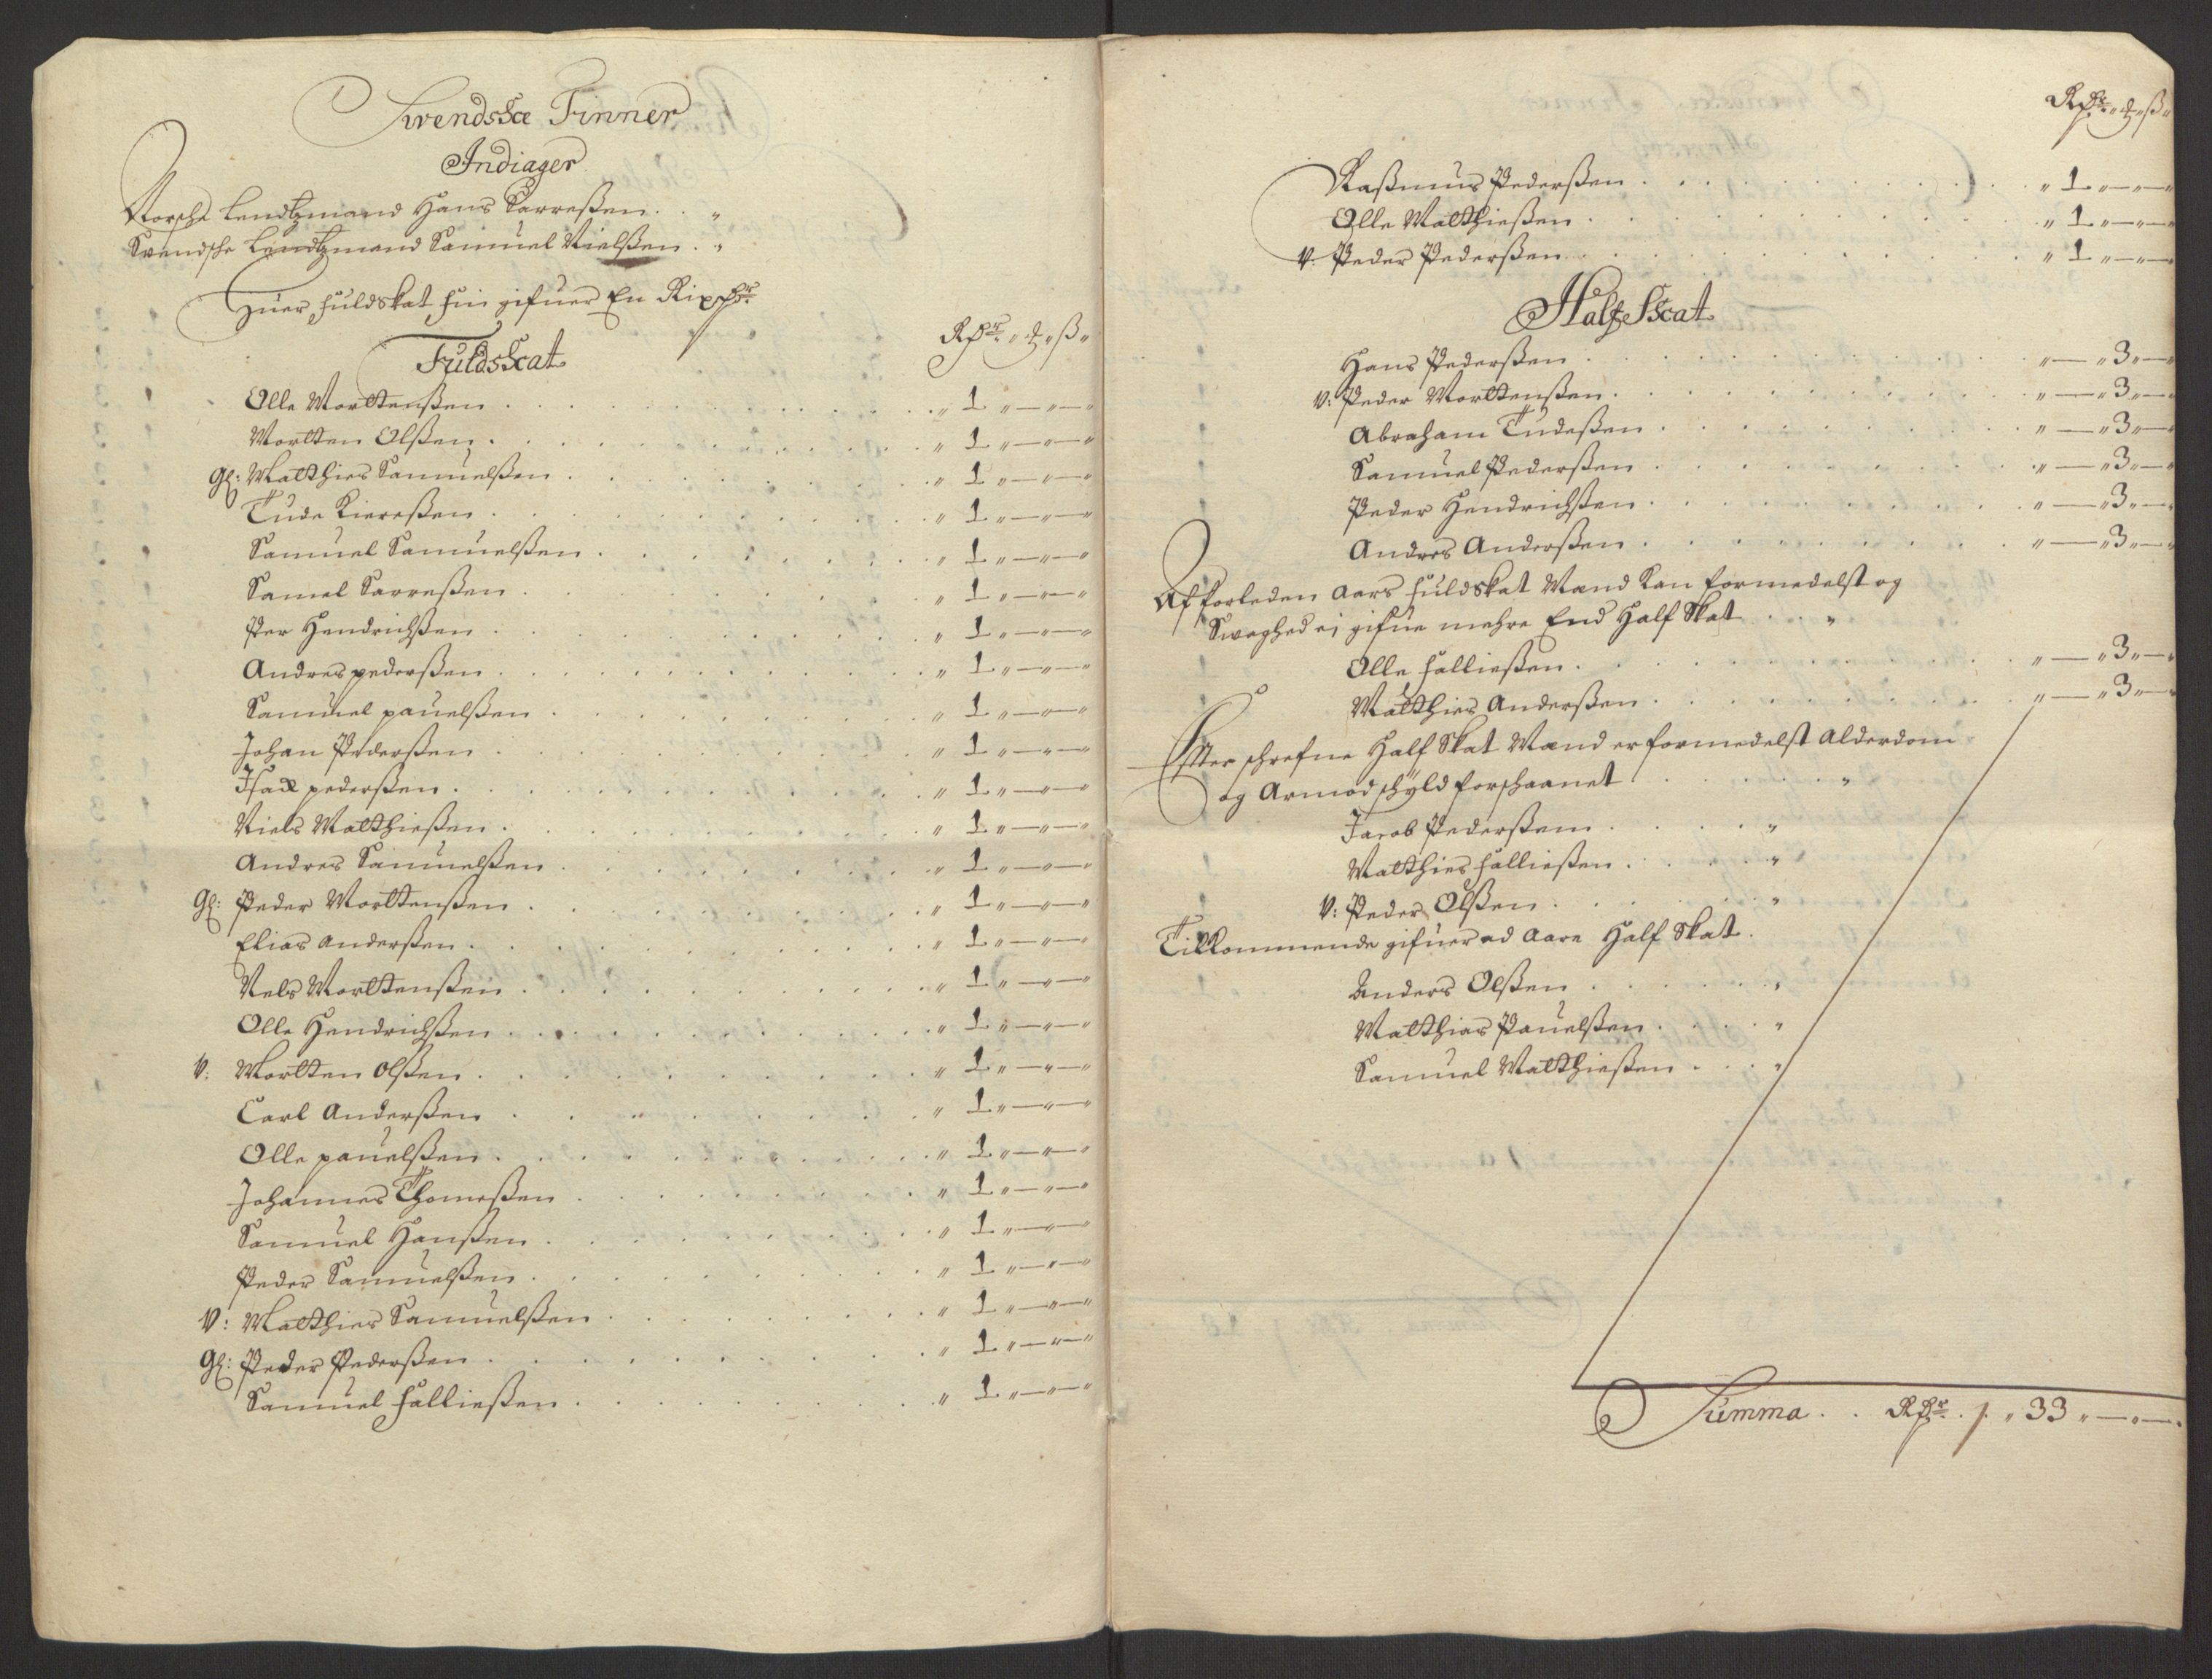 Swendske Finner
Indiager
Norsche Lendtzmand Hans Sarreßen . . "
Svendsche Lendtzmand Samuel Nielßen . "
Huer fuldskat fin gifuer En Rixdlr
Rdr " " ß "
Fuldskat
Olle Morttenßen . . . " 1 " — " — "
Mortten Olßen . . . " 1 " — " — "
Gl: Matthies Samuelßen . . . " 1 " — " — "
Tude Kiereßen . . . " 1 " — " — "
Samuel Samuelßen . . . " 1 " — " — "
Samel Sarreßen . . . " 1 " — " — "
Per Hendrichßen . . . " 1 " — " — "
Andres pederßen . . . " 1 " — " — "
Samuel pauelßen . . . " 1 " — " — "
Johan Pederßen . . . " 1 " — " — "
Isax pederßen . . . " 1 " — " — "
Niels Matthießen . . . " 1 " — " — "
Andres Samuelßen . . . " 1 " — " — "
Gl: Peder Morttenßen . . . " 1 " — " — "
Elias anderßen . . . " 1 " — " — "
Nels Morttenßen . . . " 1 " — " — "
Olle Hendrichßen . . . " 1 " — " — "
V: Mortten olßen . . . " 1 " — " — "
Carl Anderßen . . . " 1 " — " — "
Olle pauelßen . . . " 1 " — " — "
Johannes Thomeßen . . . " 1 " — " — "
Samuel Hanßen . . . " 1 " — " — "
Peder Samuelßen . . . " 1 " — " — "
V: Matthies Samuelßen . . . " 1 " — " — "
Gl: Peder Pederßen . . . " 1 " — " — "
Samuel falließen . . . " 1 " — " — "
Rdr " " ß "
Raßmus Pederßen . . . " 1 " — " — "
Olle Matthießen . . . " 1 " — " — "
V: Peder Pederßen . . . " 1 " — " — "
Half Skat
Hans Pederßen . . . " — " 3 " — "
V: Peder Morttenßen . . . " — " 3 " — "
Abraham Tudeßen . . . " — " 3 " — "
Samuel Pederßen . . . " — " 3 " — "
Peder Hendrichßen . . . " — " 3 " — "
Andres Anderßen . . . " — " 3 " — "
Af forleden aars fuldskat Mand kan formedelst og
Svaghed ej gifue mehre End Half Skat . . "
Olle falließen . . . " — " 3 " — "
Matthies Anderßen . . . " — " 3 " — "
Effter schrefne Half Skat Mand er formedelst Alderdom
og Armod schyld forschaanet . . . "
Jacob Pederßenn . . . "
Matthies falließen . . . "
V: Peder Olßen . . . "
Tilkommende gifuer ad aare Half Skat .
Anders Olßen . . . "
Matthias Pauelßen . . . "
Samuel Matthießen . . . "
Summa . . Rdr . / . " 33 " — " — .